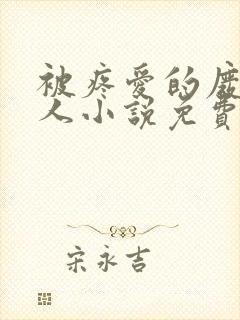 被疼爱的
人小说免費
宋永吉